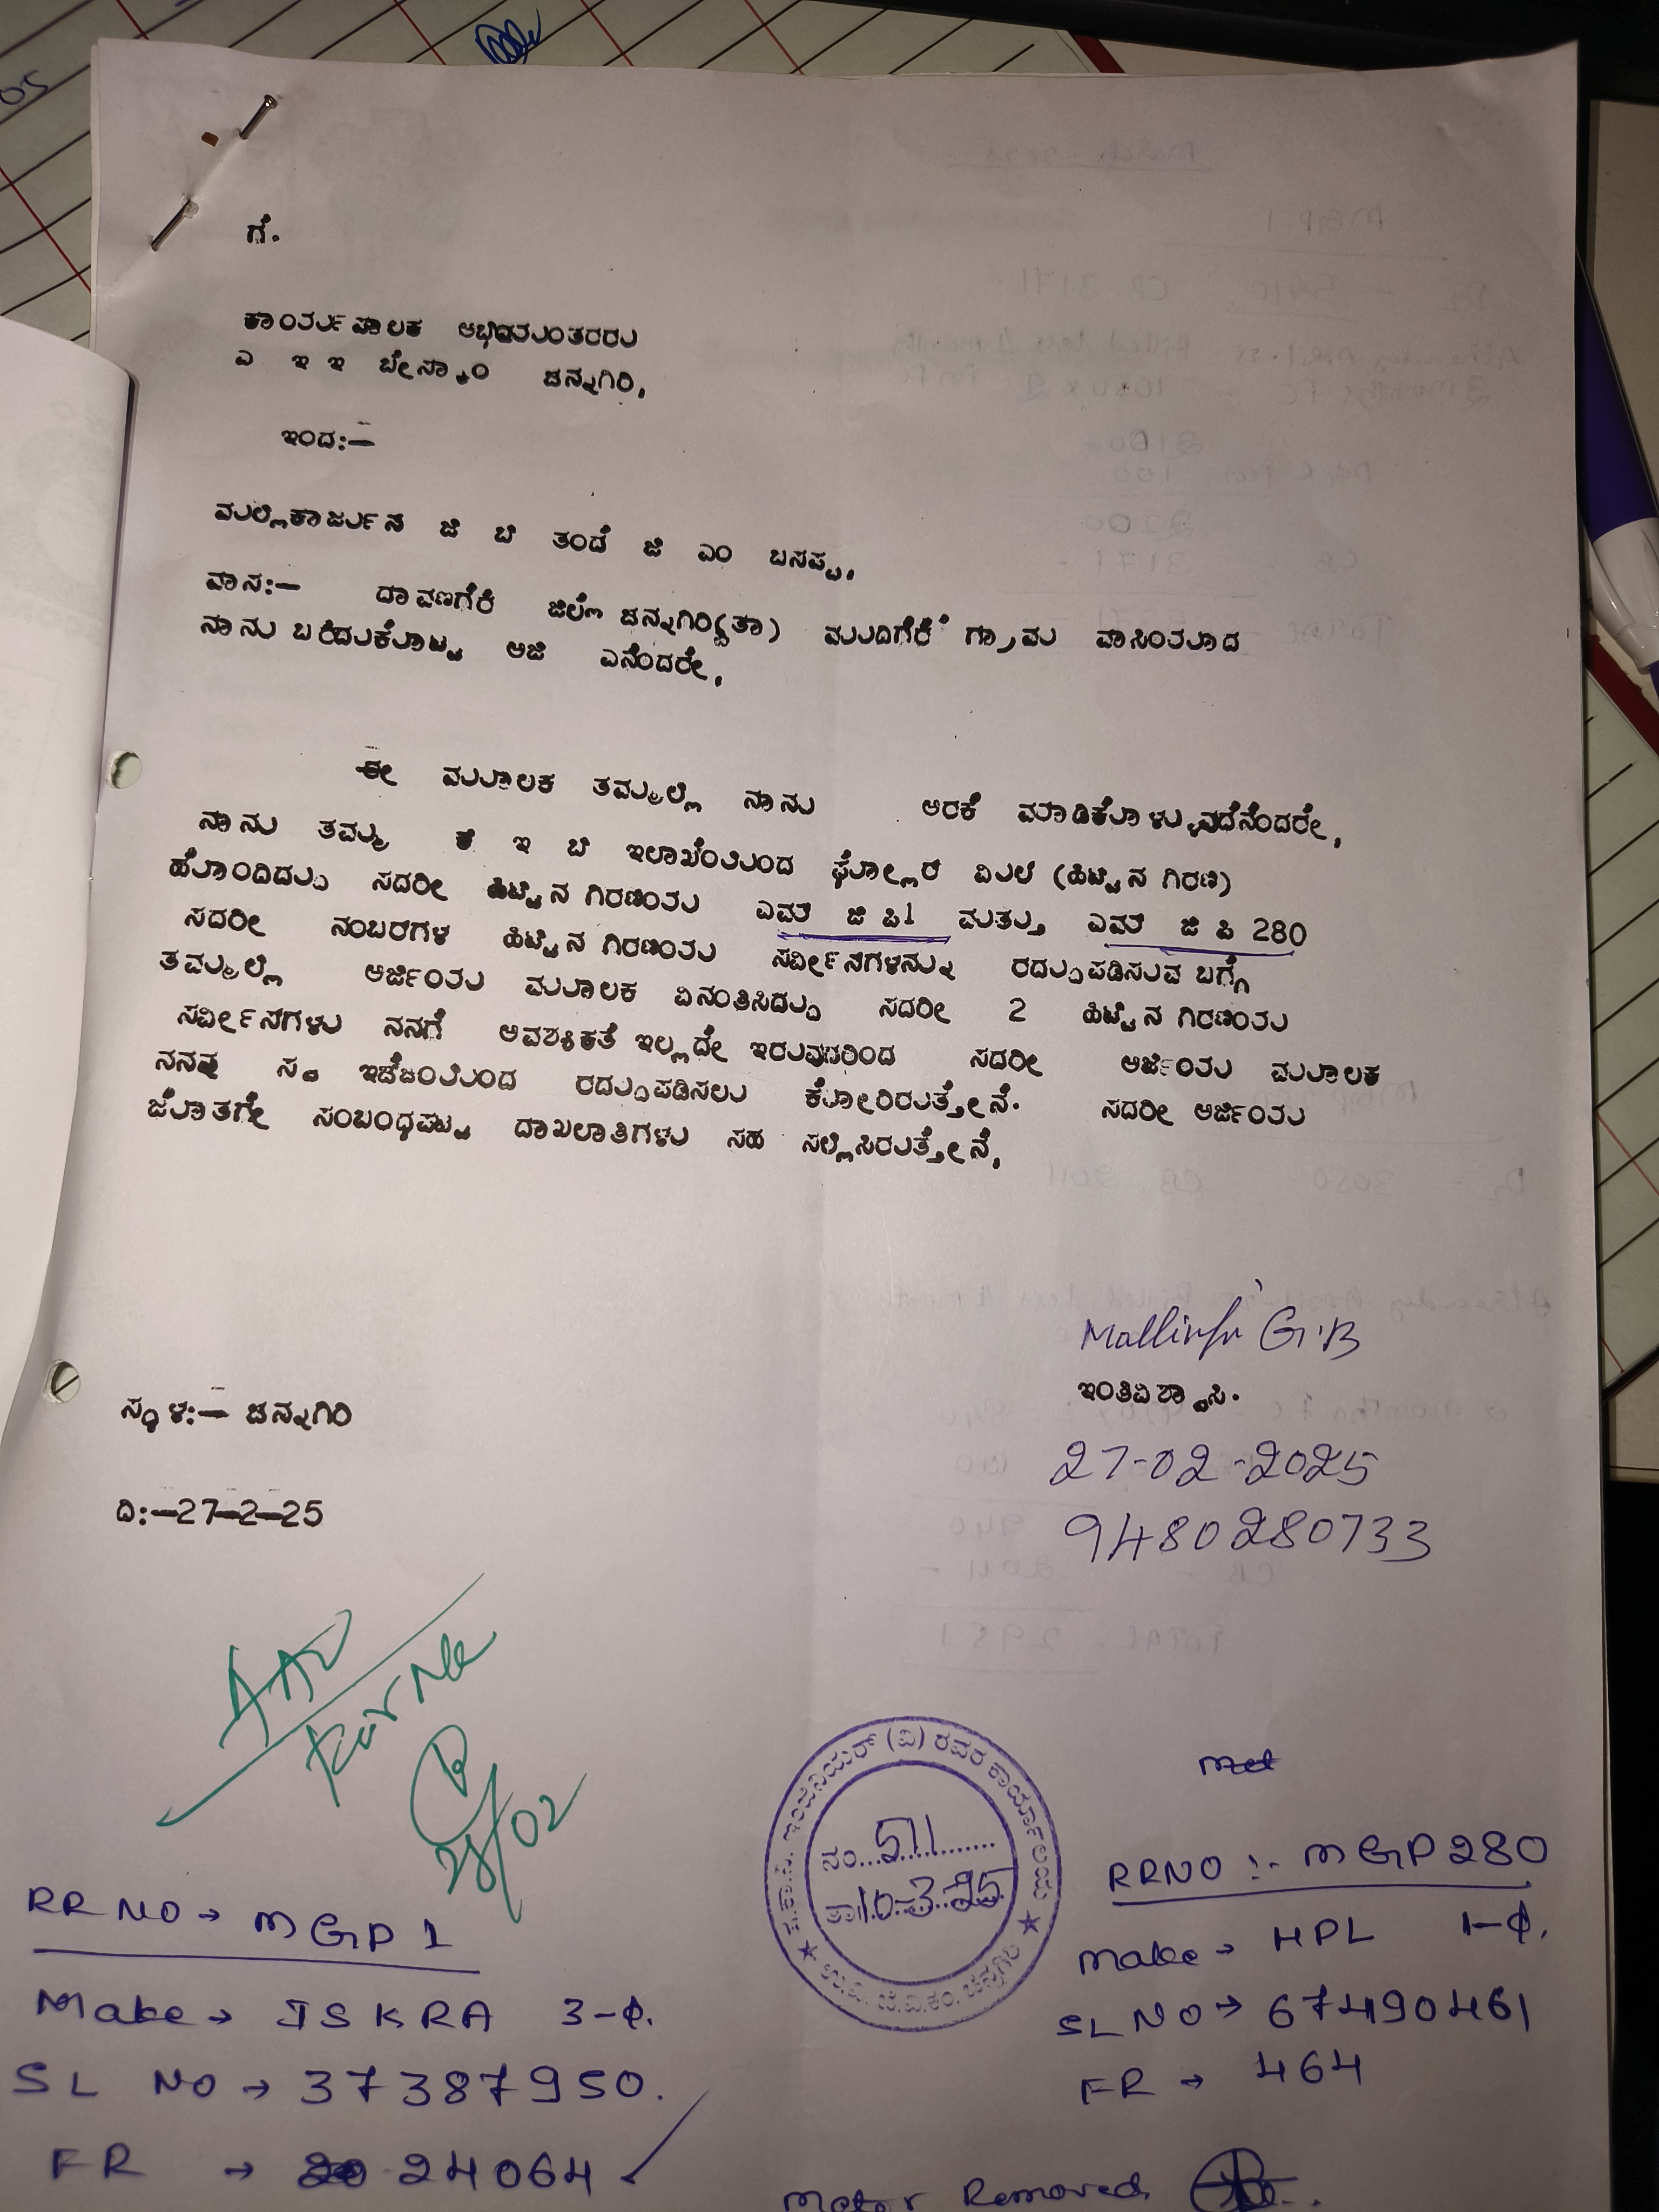 ಗೆ.
ಕಾರ್ಯಪಾಲಕ ಅಭಿಯಂತರರು
ಎ ಇ ಇ ಬೇಸ್ಕಾಂ ಚನ್ನಗಿರಿ,
ಇಂದ:—
ಮಲ್ಲಿಕಾರ್ಜುನ ಜಿ ಬಿ ತಂದೆ ಜಿ ಎಂ ಬಸಪ್ಪ,
ವಾಸ:— ದಾವಣಗೆರೆ ಜಿಲ್ಲೆ ಚನ್ನಗಿರಿ(ತಾ) ಮುದಿಗೆರೆ ಗ್ರಾಮ ವಾಸಿಯಾದ
ನಾನು ಬರೆದುಕೊಟ್ಟ ಅಜಿ ಎನೆಂದರೇ,
ಈ ಮೂಲಕ ತಮ್ಮಲ್ಲಿ ನಾನು ಅರಕೆ ಮಾಡಿಕೊಳ್ಳುವದೆನೆಂದರೇ,
ನಾನು ತಮ್ಮ ಕೆ ಇ ಬಿ ಇಲಾಖೆಯಿಂದ ಫ್ಲೋರ್ ಮಿಲ್ (ಹಿಟ್ಟಿನ ಗಿರಣಿ)
ಹೊಂದಿದ್ದು ಸದರೀ ಹಿಟ್ಟಿನ ಗಿರಣಿಯು ಎಮ್ ಜಿ ಪಿ1 ಮತ್ತು ಎಮ್ ಜಿ ಪಿ 280
ಸದರೀ ನಂಬರಗಳ ಹಿಟ್ಟಿನ ಗಿರಣಿಯು ಸರ್ವೀಸಗಳನ್ನು ರದ್ದುಪಡಿಸುವ ಬಗ್ಗೆ
ತಮ್ಮಲ್ಲಿ ಅರ್ಜಿಯು ಮೂಲಕ ವಿನಂತಿಸಿದ್ದು ಸದರೀ 2 ಹಿಟ್ಟಿನ ಗಿರಣಿಯು
ಸರ್ವೀಸಗಳು ನನಗೆ ಅವಶ್ಯಕತೆ ಇಲ್ಲದೇ ಇರುವುದರಿಂದ ಸದರೀ ಅರ್ಜಿಯು ಮೂಲಕ
ನನ್ನ ಸ್ವ ಇಚೆಛಯಿಂದ ರದ್ದುಪಡಿಸಲು ಕೋರಿರುತ್ತೇನೆ. ಸದರೀ ಅರ್ಜಿಯು
ಜೊತಗೇ ಸಂಬಂಧಪಟ್ಟ ದಾಖಲಾತಿಗಳು ಸಹ ಸಲ್ಲಿಸಿರುತ್ತೇನೆ,
G.B
ಇಂತಿವಿಶ್ವಾಸಿ.
ಸ್ಥಳ:— ಚನ್ನಗಿರಿ
27-02-2025
ದಿ:—27—2—25
9480280733
28/02
ಸ.ಕಾ.ನಿ. ಇಂಜಿನಿಯರ್ (ವಿ) ರವರ ಕಾರ್ಯಾಲಯ
ನಂ...511......
ತಾ:10-3-25
ಉ.ವಿ. ಬೆ.ವಿ.ಕಂ. ಚನ್ನಗಿರಿ
RR NO → MGP 1
Make → ISKRA 3-ф.
SL NO → 37387950.
FR → 24064
RRNO :- MGP 280
Make → HPL 1-ф.
SL NO → 67490461
FR → 464
Meter Removed.